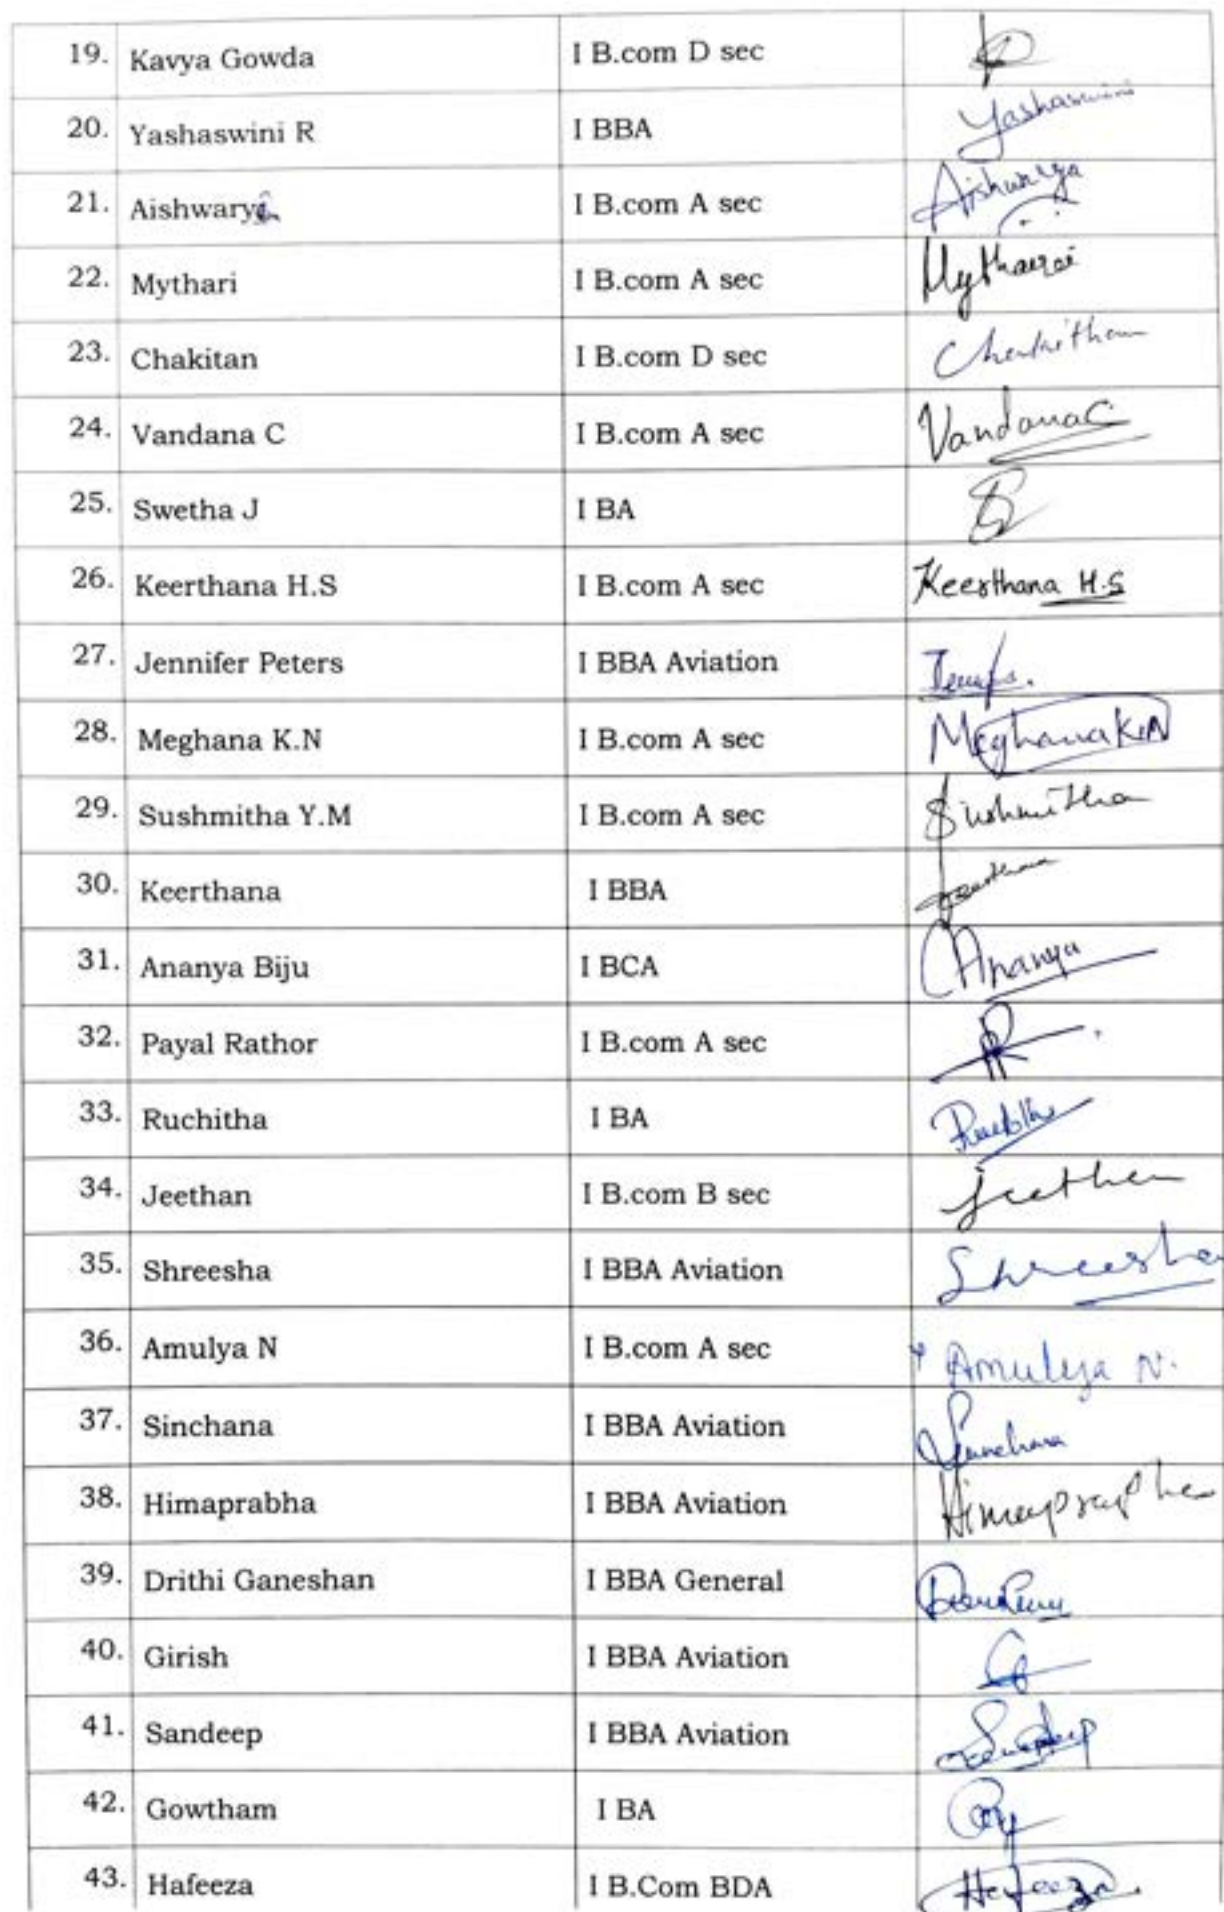 19. Kavya Gowda I B.com D sec
20. Yashaswini R I BBA Yashaswini
21. Aishwarya I B.com A sec Aishwarya
22. Mythari I B.com A sec Mythari
23. Chakitan I B.com D sec
24. Vandana C I B.com A sec Vandana C
25. Swetha J I BA
26. Keerthana H.S I B.com A sec Keerthana H.S
27. Jennifer Peters I BBA Aviation
28. Meghana K.N I B.com A sec Meghana K.N
29. Sushmitha Y.M I B.com A sec Sushmitha
30. Keerthana I BBA Keerthana
31. Ananya Biju I BCA Ananya
32. Payal Rathor I B.com A sec
33. Ruchitha I BA
34. Jeethan I B.com B sec Jeethan
35. Shreesha I BBA Aviation Shreesha
36. Amulya N I B.com A sec Amulya N.
37. Sinchana I BBA Aviation Sinchana
38. Himaprabha I BBA Aviation
39. Drithi Ganeshan I BBA General
40. Girish I BBA Aviation
41. Sandeep I BBA Aviation Sandeep
42. Gowtham I BA
43. Hafeeza I B.Com BDA Hafeeza